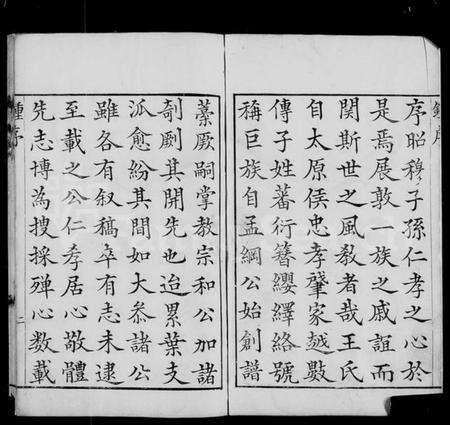 序昭穆子孫仁孝之心於
是焉展敦一族之戚誼而
関斯世之風敎者哉王氏
自太原侯忠孝肇家越數
傳子姓蕃衍簪纓繹絡號
稱巨族自孟綱公始創譜
藁厥嗣掌教宗和公加諸
剞劂其開先也迨累葉支
派愈紛其間如大叅諸公
雖各有叙稿卒有志未逮
至載之公仁孝居心敬體
先志博為搜採殫心数載
鍾序
二